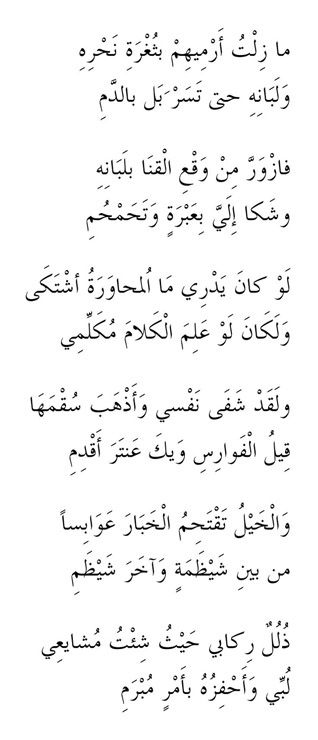 ما زِلْتُ أَرْمِيهِمْ بثُغْرَةِ نَحْرِهِ
وَلَبَانِهِ حتى تَسَرْبَل بالدَّمِ
فازْوَرَّ مِنْ وَقْعِ الْقنَا بلَبَانِهِ
وشَكا إلَيَّ بِعَبْرَةٍ وَتَحَمْحُمِ
لَوْ كانَ يَدْرِي مَا اُلمحاوَرَةُ أشْتَكَى
وَلَكَانَ لَوْ عَلِمَ الْكَلامَ مُكَلِّمِي
ولَقَدْ شَفَى نَفْسي وَأَذْهَبَ سُقْمَهَا
قِيلُ الْفَوارِسِ وَيكَ عَنتَرَ أَقْدِمِ
وَالْخَيْلُ تَقْتَحِمُ الْخَبَارَ عَوَابِساً
من بينِ شَيْظَمَةٍ وَآخَرَ شَيْظَمِ
ذُلُلٌ رِكابي حَيْثُ شِئْتُ مُشايعِي
لُبِّي وَأَحْفِزُهُ بأَمْرٍ مُبْرَمِ